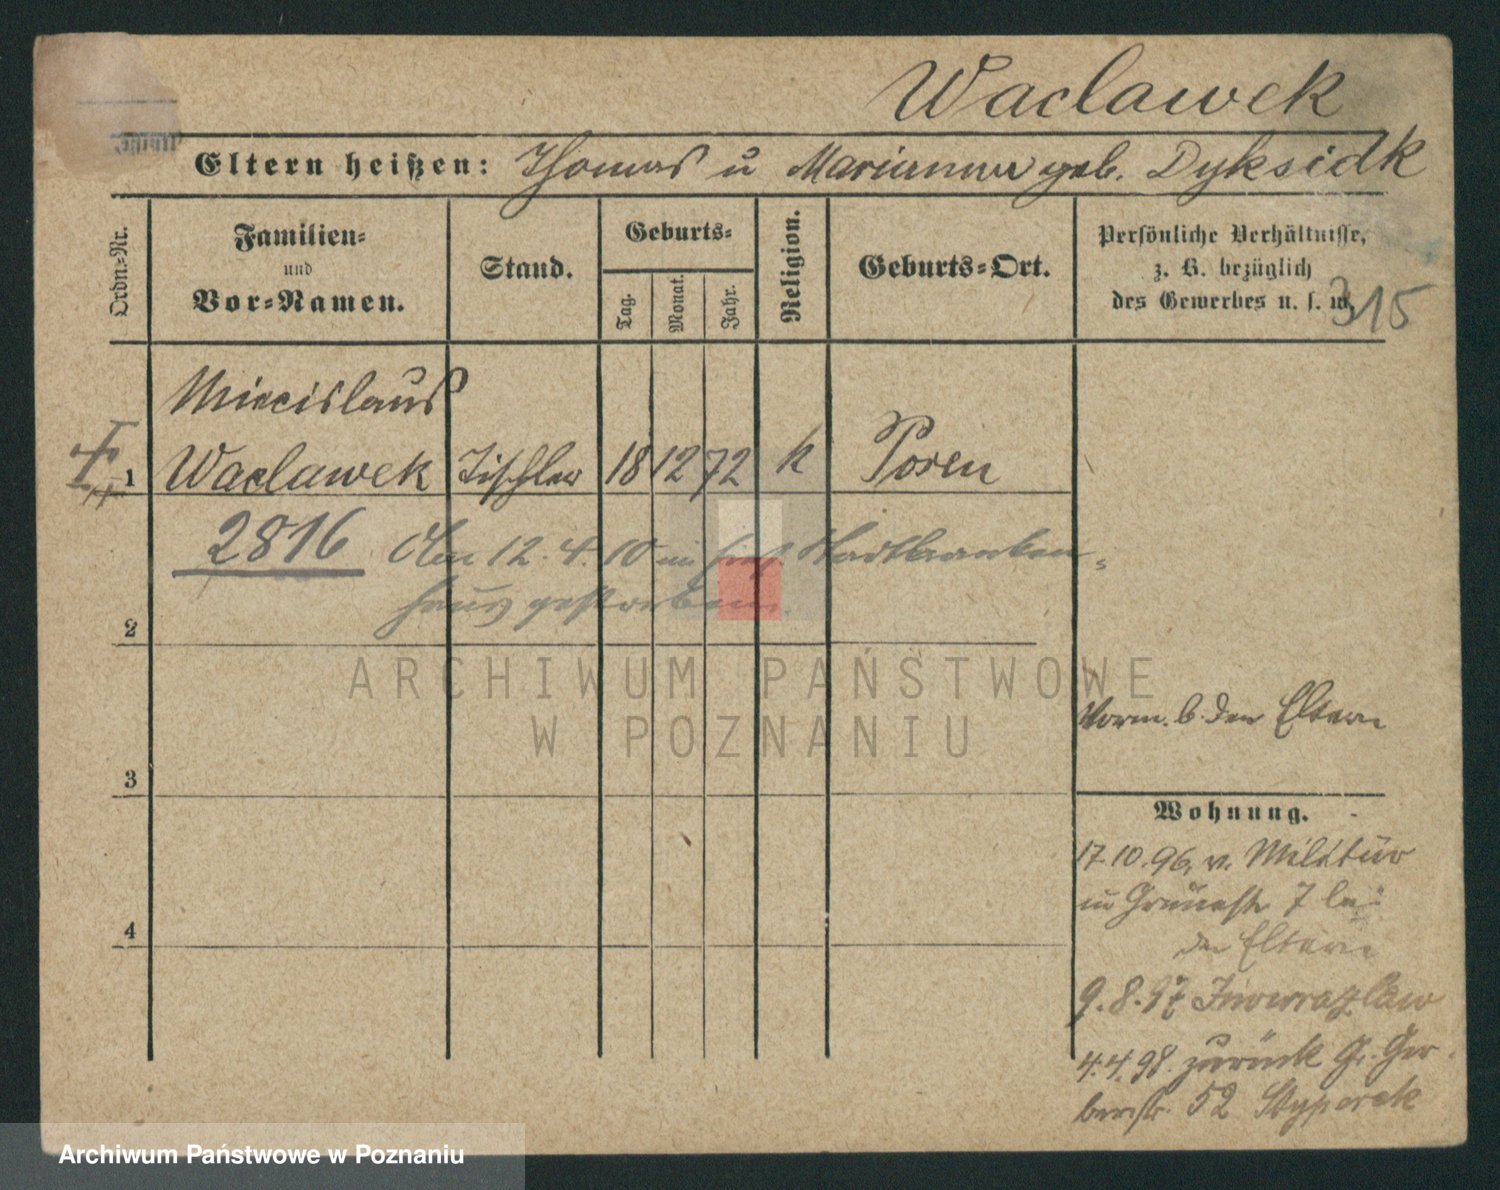 Waclawek
Eltern heißen: Thomas u Marianna geb. Dyksidk
Ordn.-Nr.
Familien-
und
Vor-Namen.
Stand.
Geburts-
Tag.
Monat.
Jahr.
Religion.
Geburts-Ort.
Persönliche Verhältnisse,
z. B. bezüglich
des Gewerbes u. s. w.
315
Miecislaus
1 Waclawek Tischler 18 12 72 k Posen
2816 Am 12. 4. 10 im hies. Stadtkranken-
haus gestorben.
2
3
4
Vorm. b. den Eltern
Wohnung.
17.10.96, v. Militär
in Grünestr 7 bei
den Eltern
9.8.97 Inowrazlaw
4.4.98. zurück Gr. Ger
berstr. 52 Styperek
ARCHIWUM PAŃSTWOWE
W POZNANIU
Archiwum Państwowe w Poznaniu